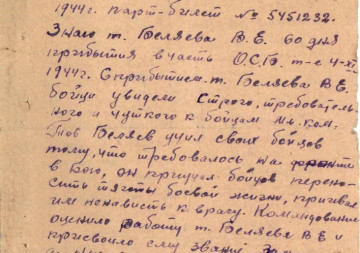 1944г. парт-билет № 5451232.
Знаю т. Беляева В.Е. со дня
прибытия в часть О.С.Б. т-е 4-XI
1944г. С прибытием т. Беляева В.Е.
бойцы увидели строго, требователь
ного и чуткого к бойцам мл. ком.
Тов Беляев учил своих бойцов
тому, что требовалось на фронте
в бою, он приучил бойцов перено-
сить тяготы боевой жизни, прививал
им ненависть к врагу. Командование
оценило работу т. Беляева В.Е и
присвоило ему звание